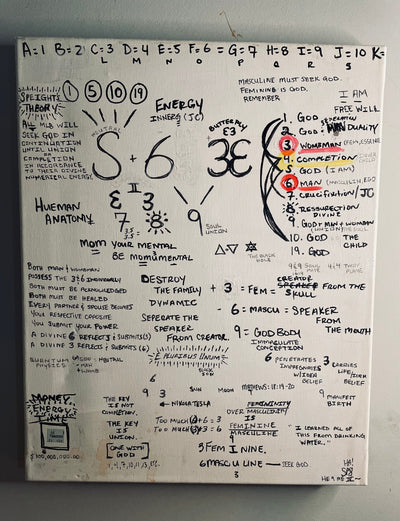 A=1 B=2 C=3 D=4 E=5 F=6 = G=7 H=8 I=9 J=10 K=
L M N O P Q R S
1 5 10 19
MASCULINE MUST SEEK GOD.
FEMININE IS GOD.
REMEMBER
I AM
FREE WILL
SPEIGHT
THEORY
ALL MEN WILL
SEEK GOD IN
CONTINUATION
UNTIL UNION
OR
COMPLETION
IN ACCORDANCE
TO THEIR DIVINE
NUMERICAL ENERGY
NEUTRAL
ENERGY
INNERG (JC)
S + 6
BUTTERFLY
E3
3E
1. GOD
2. GOD DUALITY
3 WOMEMAN (FEM, ESSENCE
4. COMPLETION
5. GOD (I AM)
6 MAN (MASCULIN, EGO
7. CRUCIFIXTION / JC
8. RESSURECTION
DIVINE
9. GOD MAN & WOMAN
(UNION)
10. GOD THE
CHILD
19. GOD
HUEMAN
ANATOMY
II
E 3
7 8
9
SOUL
UNION
MOM YOUR MENTAL
BE MOMUMENTAL
THE BLACK
HOLE
BOTH MAN & WOMEMAN
POSSESS THE 3 & 6 INDIVIDUALLY
BOTH MUST BE ACKNOWLEDGED
BOTH MUST BE HEALED
EVERY PARTNER & SPOUSE BECOMES
YOUR RESPECTIVE OPPOSITE
YOU SUBMIT YOUR POWER
A DIVINE 6 REFLECTS & SUBMITS (3)
A DIVINE 3 REFLECTS & SUBMITS (6)
QUANTUM
PHYSICS
DESTROY
THE FAMILY
DYNAMIC
SEPERATE THE
SPEAKER
FROM CREATOR.
E PLURIBUS UNUM
+ 3 = FEM = CREATOR FROM THE
SKULL
- 6 = MASCU = SPEAKER
FROM
THE MOUTH
9 = GOD BODY
IMMACULATE
CONCEPTION
6 PENETRATES
IMPREGNATES
W/ IDEA
BELIEF
3 CARRIES
LIFE/
IDEA
BELIEF
6
9 3 SUN MOON MATTHEWS: 18:19-20
NIKOLA TESLA
9 MANIFEST
BIRTH
MONEY,
ENERGY
TIME
$100,000,000.00
THE KEY
IS NOT
COMPLETION.
THE KEY
IS
UNION.
ONE WITH
GOD
TOO MUCH + 6 = 3
TOO MUCH 3 = 6
FEMININITY
OVER MASCULINITY
IS
FEMININE
MASCULINE
"I LEARNED ALL
OF THIS FROM DRINKING
WATER."
5 FEM I NINE.
6 MASCULINE — SEEK GOD.
3
HA!